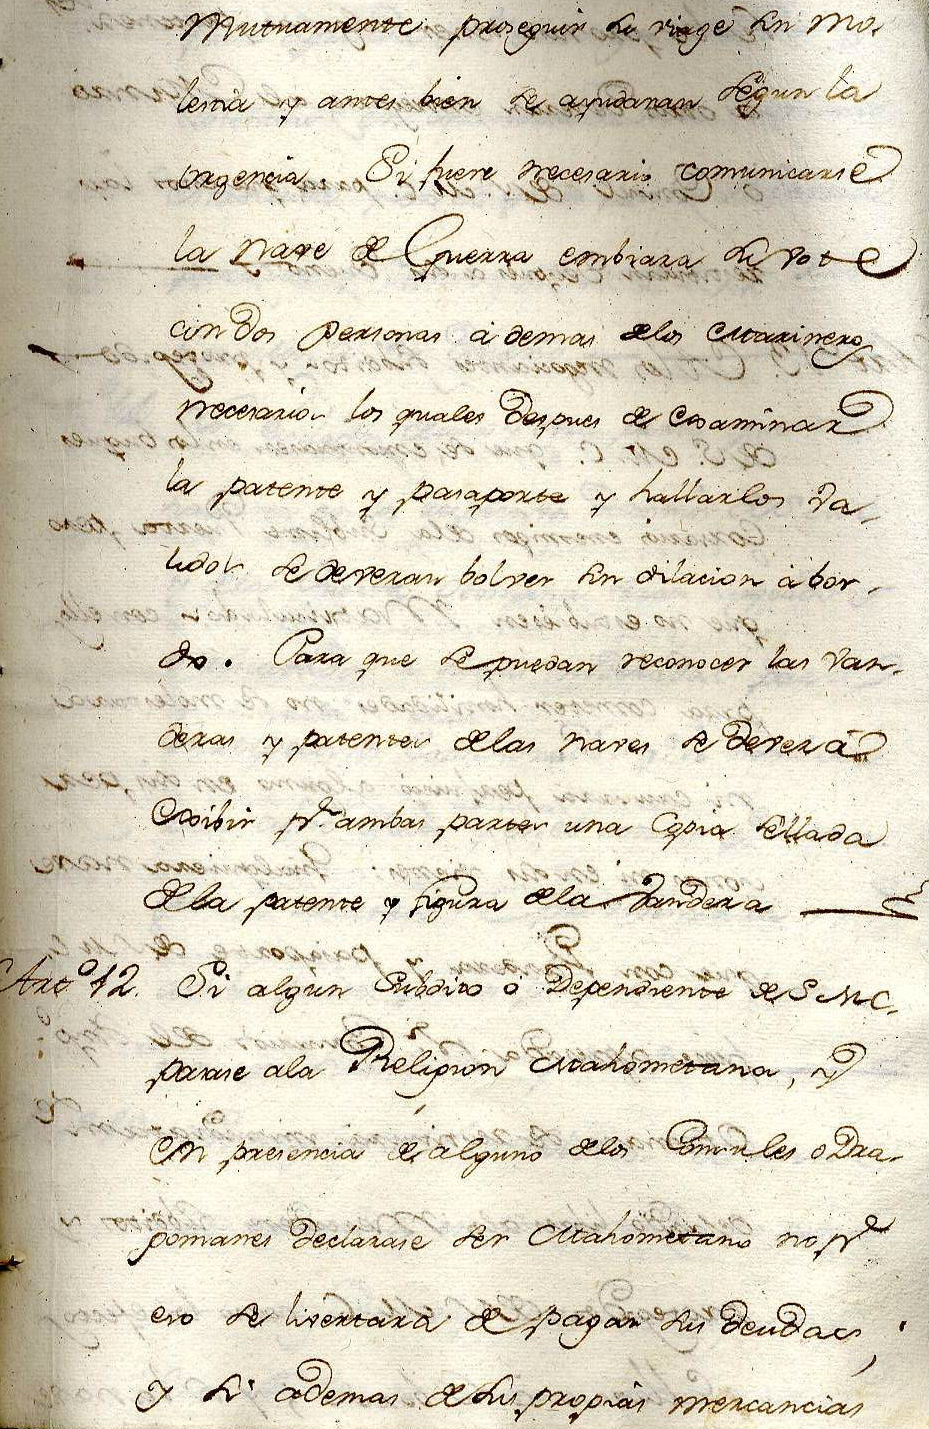 Mutuamente proseguir su viage sin mo-
lestia y antes bien se ayudaran segun la
urgencia. Si fuere necesario comunicarse
la nave de Guerra embiara su vote
con dos personas ademas delos Marineros
necesarios los quales despues de examinar
la patente y pasaporte y hallarlos va-
lidos se deveran bolver sin dilacion a bor-
do. Para que se puedan reconocer las van-
deras y patentes delas naves se deverá
exibir pr. ambas partes una Copia sellada
dela patente y figura dela Vandera
Arto. 12. Si algun Subdito ó Dependiente de S M C.
pasase ala Religion Mahometana, y
en presencia de alguno delos Consules o Dra-
gomanes declarase ser Mahometano no pr
eso se livertara de pagar sus deudas,
y si ademas de sus propias mercancias